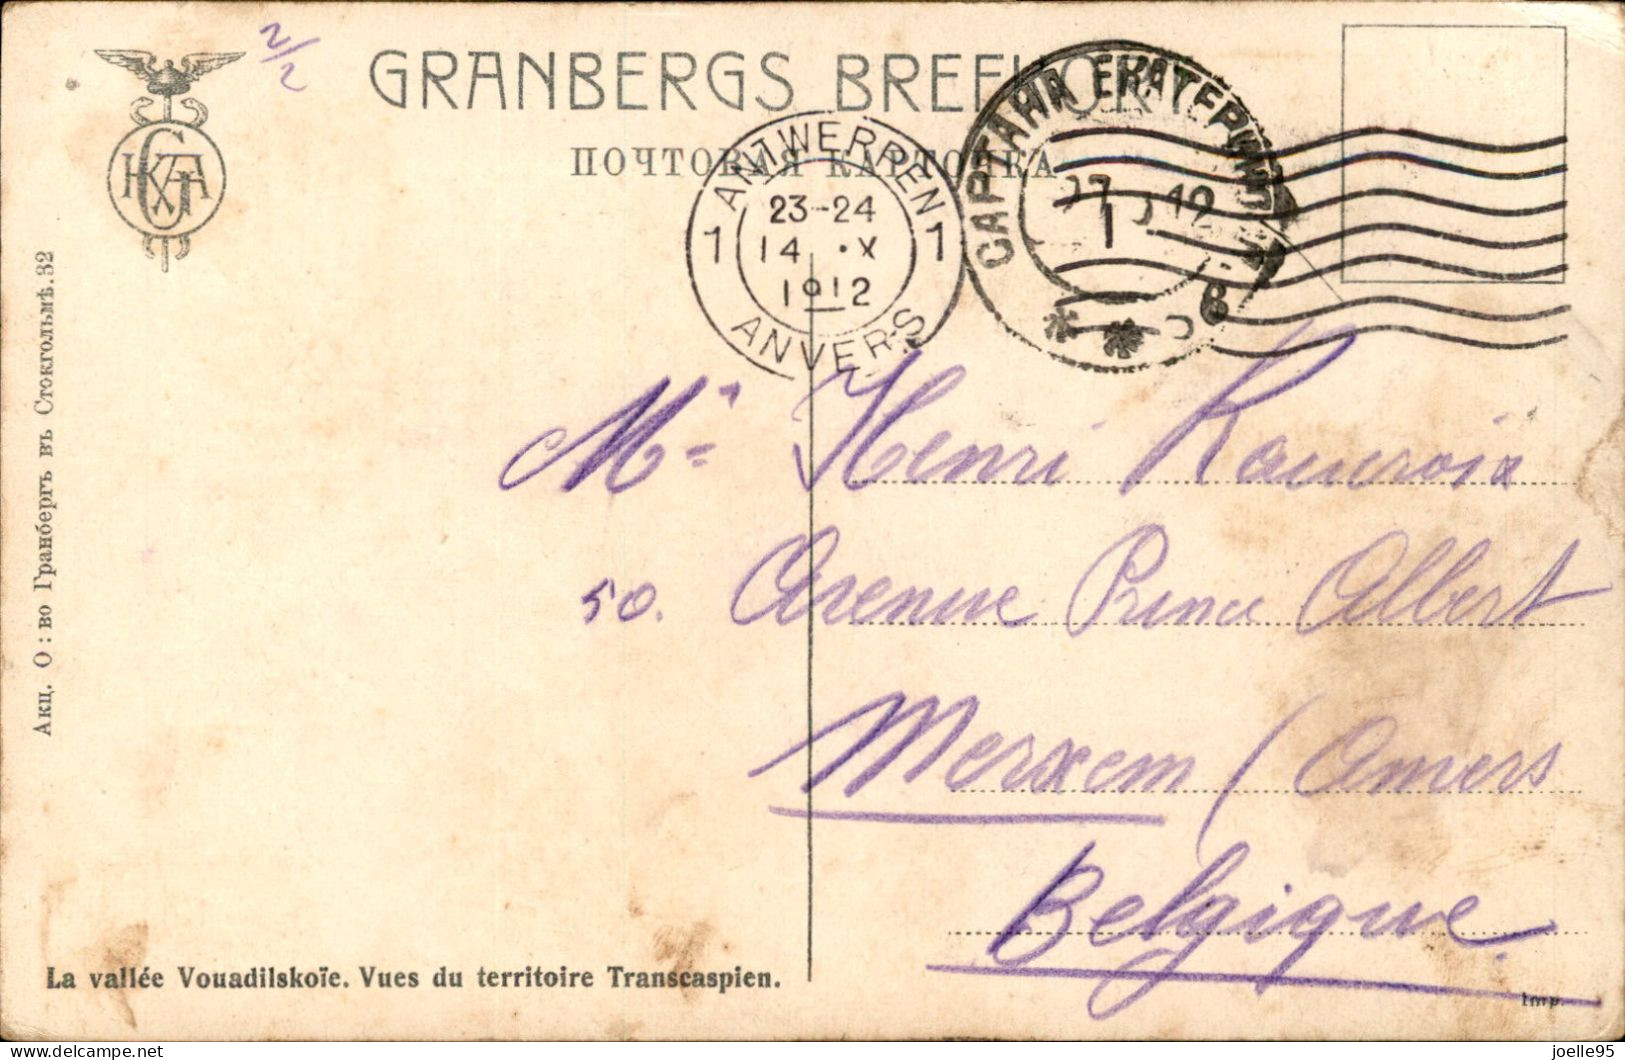 2/2
GRANBERGS BREFKORT
ПОЧТОВАЯ КАРТОЧКА
ANTWERPEN
23-24
1 14 . X 1
1912
ANVERS
САРТАНА ЕКАТЕРИН
Акц. О: во Гранбергъ въ Стокгольмѣ. 32
Mr Henri
50. Avenue Prince Albert
Merxem (Anvers
Belgique.
La vallée Vouadilskoïe. Vues du territoire Transcaspien.
Imp.
delcampe.net
joelle95